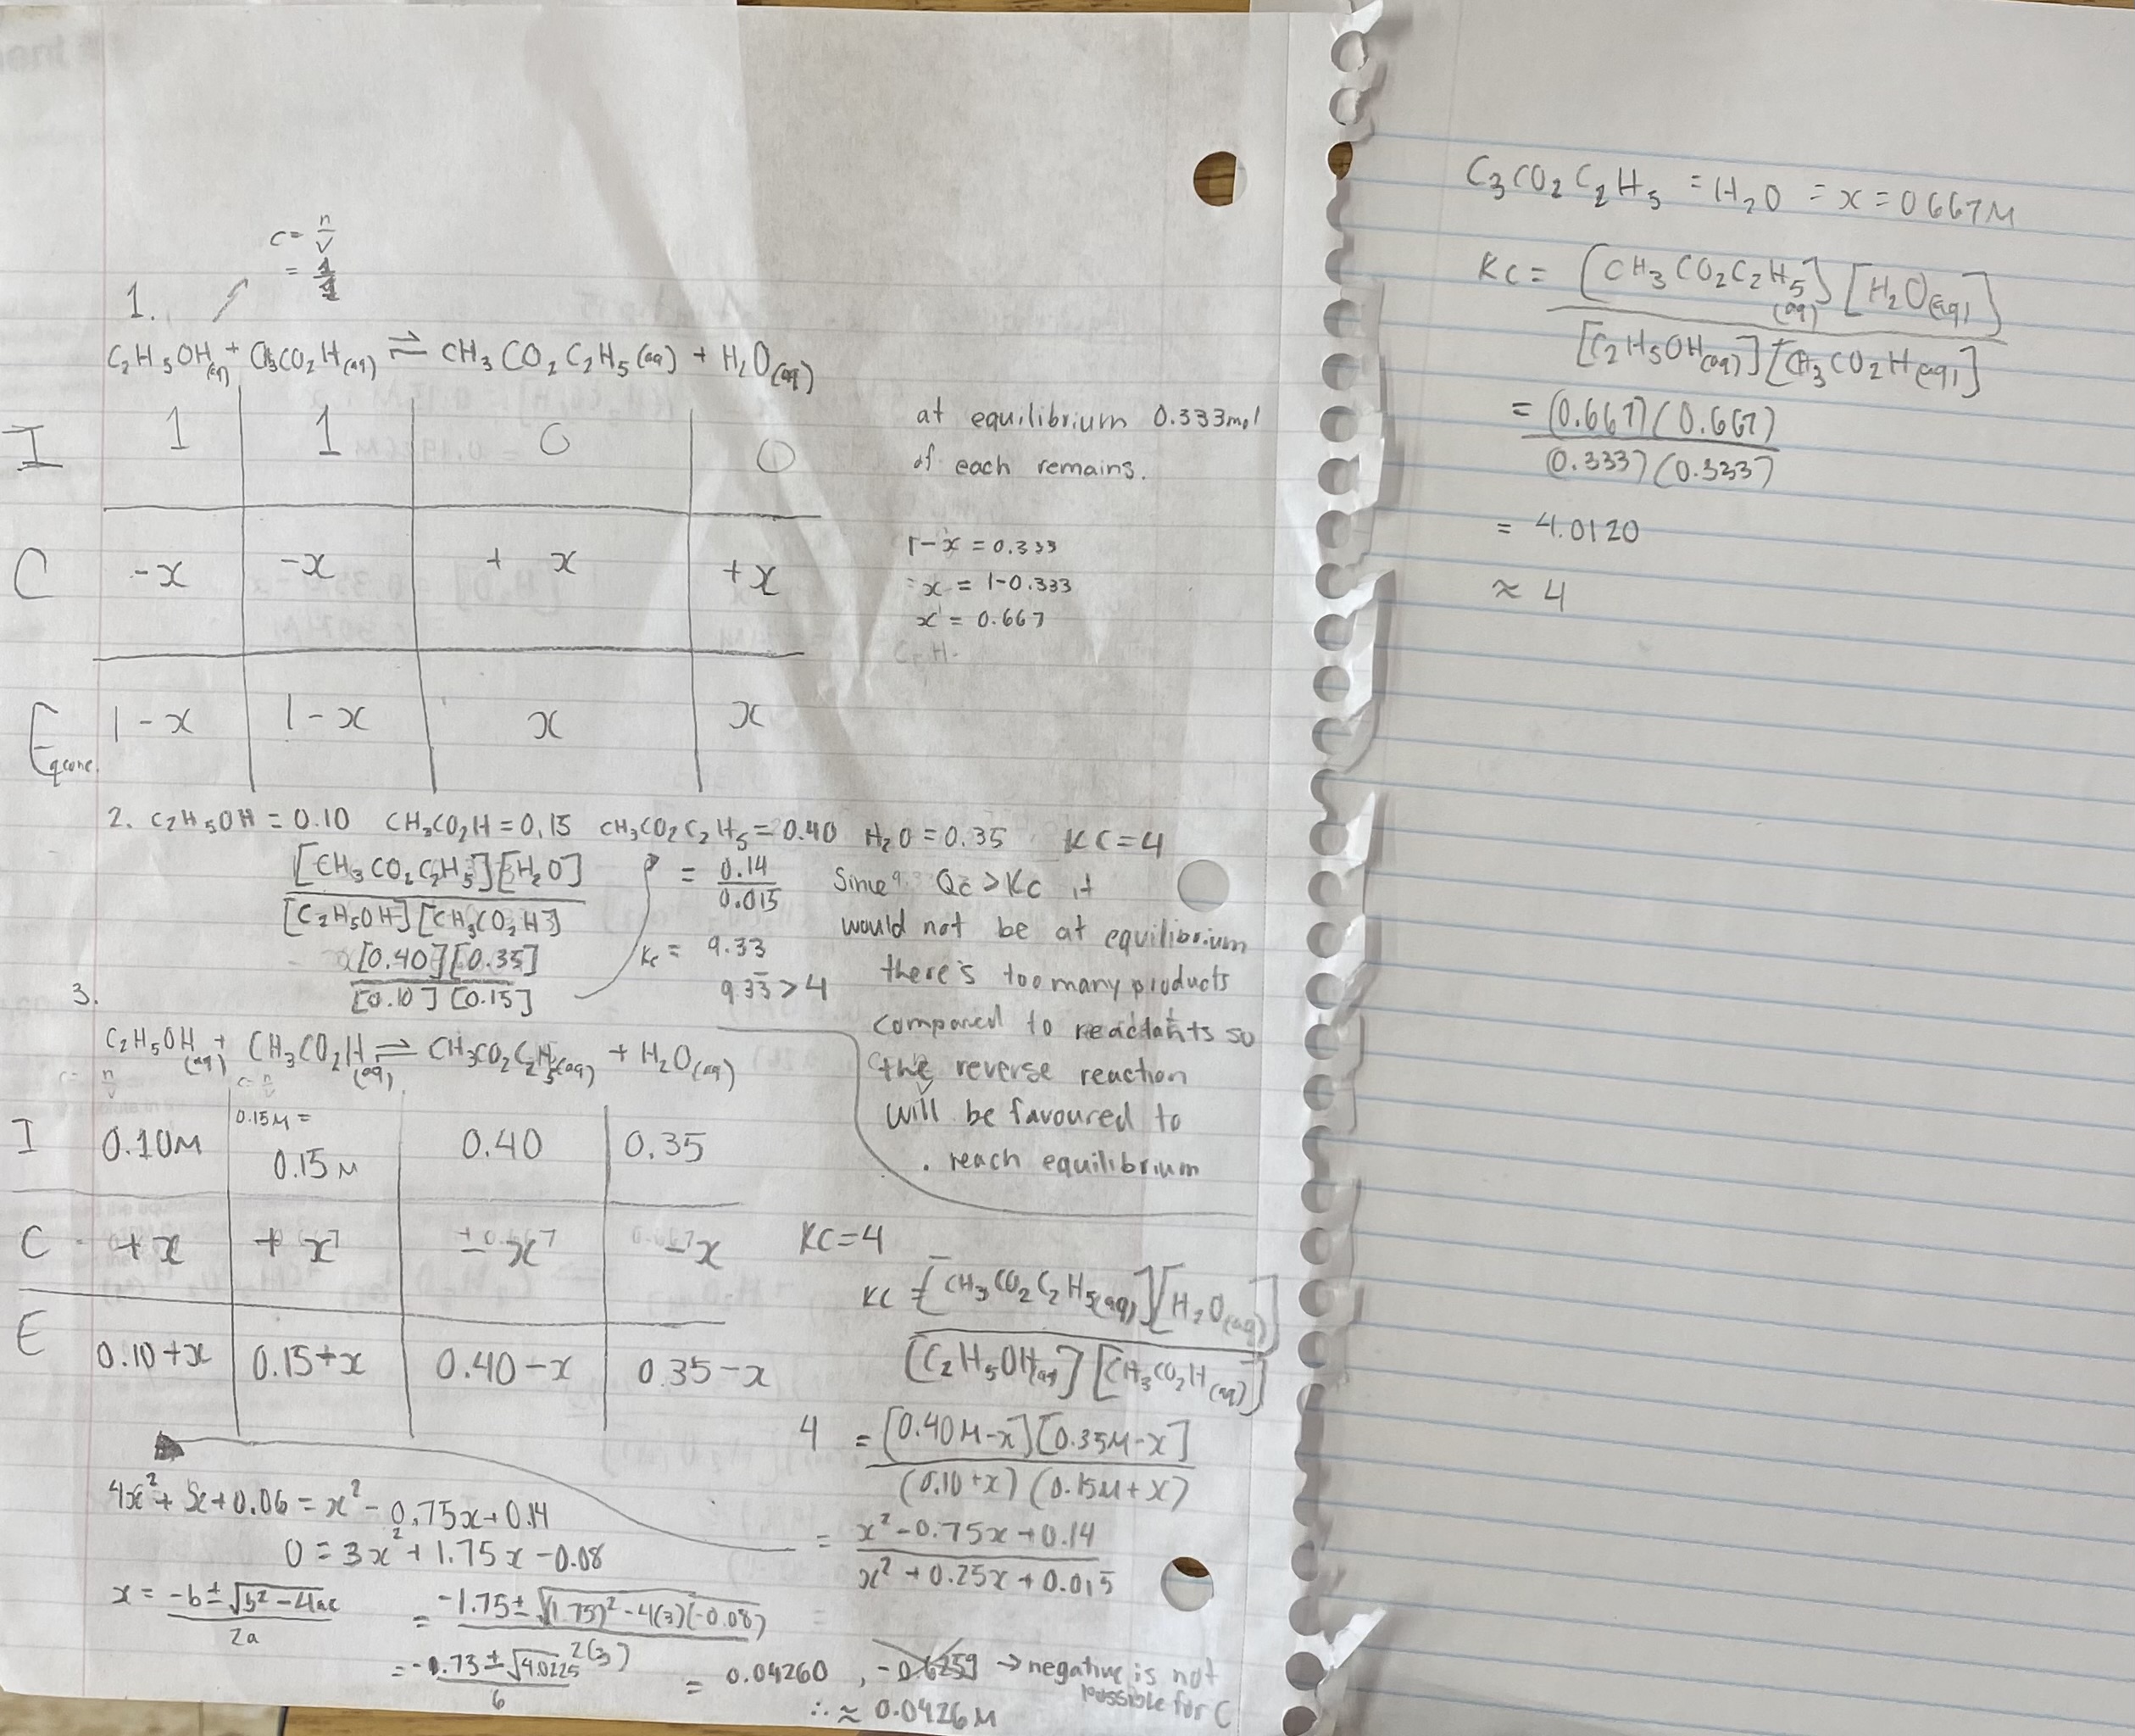 c = n/V
= 1/1
1.
C₂H₅OH(aq) + CH₃CO₂H(aq) ⇌ CH₃CO₂C₂H₅(aq) + H₂O(aq)
I 1 1 0 0
C -x -x + x +x
Eq conc. 1-x 1-x x x
at equilibrium 0.333mol
of each remains.
1-x = 0.333
x = 1-0.333
x = 0.667
2. C₂H₅OH = 0.10 CH₃CO₂H = 0.15 CH₃CO₂C₂H₅ = 0.40 H₂O = 0.35 KC = 4
[CH₃CO₂C₂H₅][H₂O]
[C₂H₅OH][CH₃CO₂H]
[0.40][0.35]
[0.10][0.15]
= 0.14
0.015
Kc = 9.33
9.33 > 4
Since Qc > Kc it
would not be at equilibrium
there's too many products
compared to reactants so
the reverse reaction
will be favoured to
reach equilibrium
3.
C₂H₅OH(aq) + CH₃CO₂H(aq) ⇌ CH₃CO₂C₂H₅(aq) + H₂O(aq)
I 0.10M 0.15M = 0.15M 0.40 0.35
C +x +x -x -x
E 0.10+x 0.15+x 0.40-x 0.35-x
KC = 4
KC = [CH₃CO₂C₂H₅(aq)][H₂O(aq)]
[C₂H₅OH(aq)][CH₃CO₂H(aq)]
4 = [0.40M-x][0.35M-x]
(0.10+x)(0.15M+x)
= x²-0.75x+0.14
x²+0.25x+0.015
4x²+x+0.06 = x²-0.75x+0.14
0 = 3x²+1.75x-0.08
x = -b±√b²-4ac
2a
= -1.75±√(1.75)²-4(3)(-0.08)
2(3)
= -1.73±√4.0225
6
= 0.04260 , -0.6259 → negative is not
possible for C
∴ ≈ 0.0426M
C₃CO₂C₂H₅ = H₂O = x = 0.667M
KC = [CH₃CO₂C₂H₅(aq)][H₂O(aq)]
[C₂H₅OH(aq)][CH₃CO₂H(aq)]
= (0.667)(0.667)
(0.333)(0.333)
= 4.0120
≈ 4